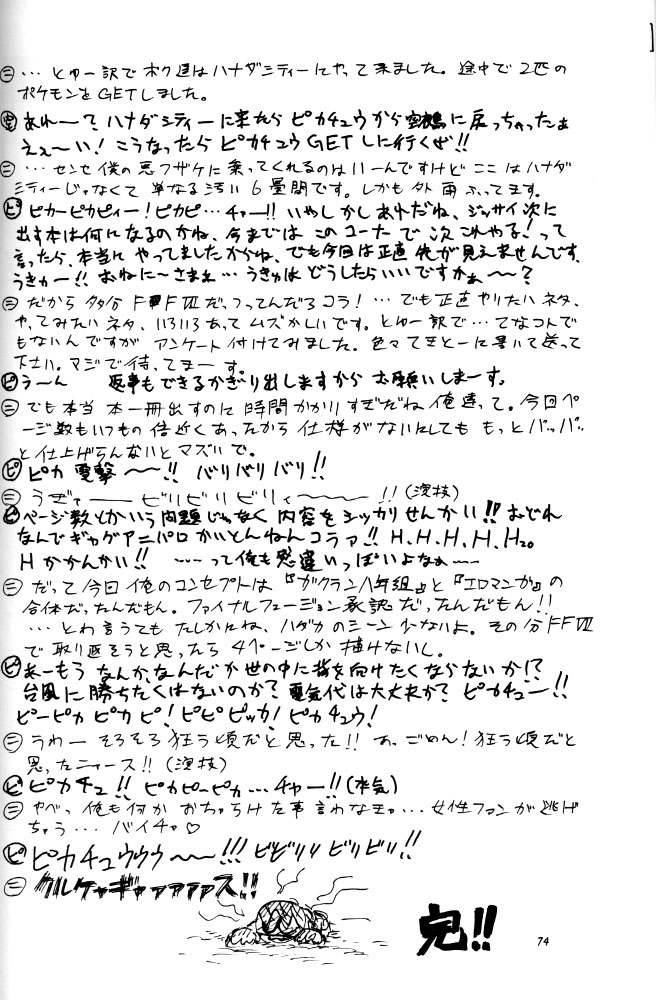 ㊁…とゆー訳でボク達はハナダシティーにやって来ました。途中で2匹の
ポケモンをGETしました。
あれー?ハナダシティーに来たらピカチュウから空鶴に戻っちゃったぁ
えぇ〜い!こうなったらピカチュウGETしに行くぜ!!
㊁…センセ僕の悪フザケに乗ってくれるのはいーんですけどここはハナダ
シティーじゃなくて単なる汚い6畳間です。しかも外雨ふってます。
ピ ピカーピカピィー!ピカピ…チャー!!いやしかしあれだね、ジッサイ次に
出す本は何になるのかね、今まではこのコーナで次これやる!って
言ったら、本当にやってましたからね、でも今回は正直先が見えませんです、
うきゅー!!おねに〜さまぁ…うきゅはどうしたらいいですかぁ〜〜?
㊁だから多分FFⅦだ、つってんだろコラ!…でも正直やりたいネタ、
やってみたいネタ、いろいろあってムズかしいです。とゆー訳で…てなコトで
もないんですがアンケート付けてみました。色々てきとーに書いて送って
下さい。マジで待ってまーす。
ピ うーん 返事もできるかぎり出しますからお願いしまーす。
㊁でも本当本一冊出すのに時間かかりすぎだね俺達って。今回ペ
ージ数もいつもの倍近くあったから仕様がないにしてももっとパッパッ
と仕上げらんないとマズいで。
ピ ピカ電撃〜〜!!バリバリバリ!!
㊁うぎゃ――ビリビリビリィ〜〜〜!!(演技)
ピ ページ数とかいう問題じゃなく内容をシッカリせんかい!!おどれ
なんでギャグアニパロかいとんねんコラァ!!H、H、H、H、H₂₀
Hかかんかい!! ……って俺も思違いっぽいよなぁ〜
㊁だって今回俺のコンセプトは『ガクラン八年組』と『エロマンガ』の
合体だったんだもん。ファイナルフュージョン承認だったんだもん!!
…とわ言うてもたしかにね、ハダカのシーン少ないよ。その分FFⅦ
で取り返そうと思ったら4ページしか描けないし。
ピ あーもうなんか、なんだか世の中に背を向けたくならないか!?
台風に勝ちたくはないのか?電気代は大丈夫か?ピカチュー!!
ピーピカピカピ!ピピピッカ!ピカチュウ!
㊁うわーそろそろ狂う頃だと思った!!あ、ごめん!狂う頃だと
思ったニャース!!(演技)
ピ ピカチュ!!ピカピーピカ…チャー!!(本気)
㊁やべっ俺も何かおちゃらけた事言わなきゃ…女性ファンが逃げ
ちゃう…バイチャ♡
ピ ピカチュウウウ〜〜!!!ビビリリビリビリ!!
㊁グルゲャギャァァァァス!!
完!!
74